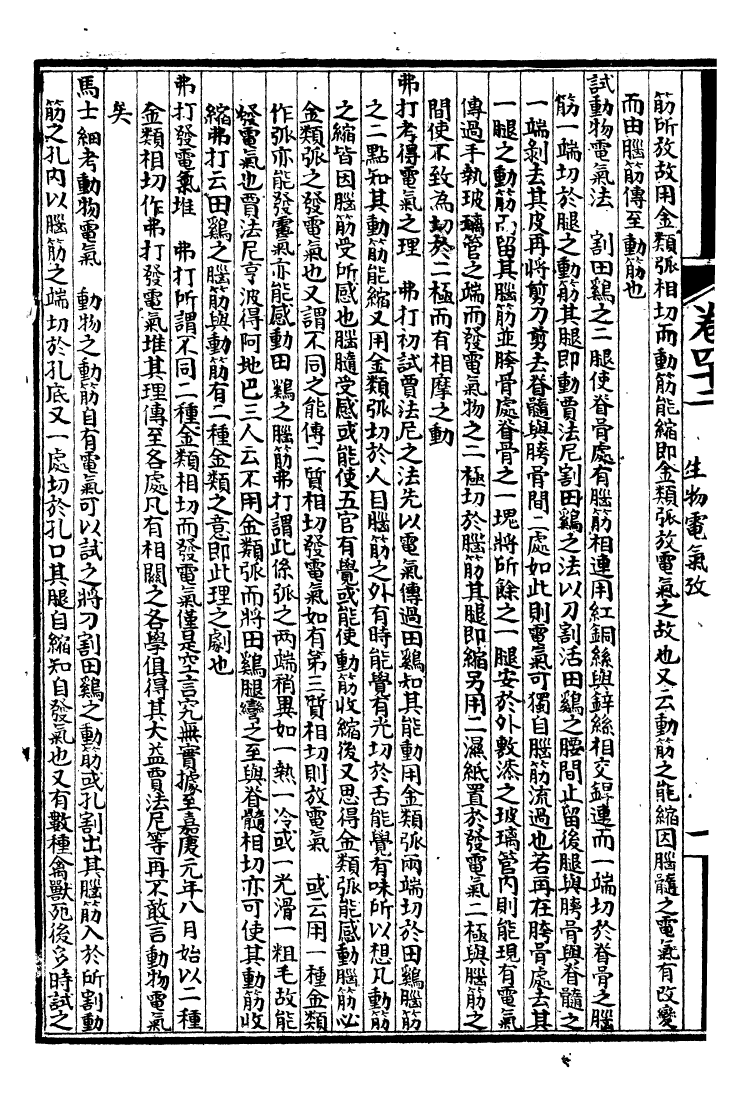 卷四十二
生物電氣攷
一
筋所放故用金類弧相切而動筋能縮即金類弧放電氣之故也又云動筋之能縮因腦髓之電氣有改變
而由腦筋傳至動筋也
試動物電氣法　割田鷄之二腿使脊骨處有腦筋相連用紅銅絲與鋅絲相交銲連而一端切於脊骨之腦
筋一端切於腿之動筋其腿即動賈法尼割田鷄之法以刀割活田鷄之腰間止留後腿與胯骨與脊髓之
一端剝去其皮再將剪刀剪去脊髓與胯骨間二處如此則電氣可獨自腦筋流過也若再在胯骨處去其
一腿之動筋而留其腦筋並胯骨處脊骨之一塊將所餘之一腿安於外敷漆之玻璃管內則能現有電氣
傳過手執玻璃管之端而發電氣物之二極切於腦筋其腿即縮另用二濕紙置於發電氣二極與腦筋之
間使不致為切於二極而有相摩之動
弗打考得電氣之理　弗打初試賈法尼之法先以電氣傳過田鷄知其能動用金類弧兩端切於田鷄腦筋
之二點知其動筋能縮又用金類弧切於人目腦筋之外有時能覺有光切於舌能覺有味所以想凡動筋
之縮皆因腦筋受所感也腦髓受感或能使五官有覺或能使動筋收縮後又思得金類弧能感動腦筋必
金類弧之發電氣也又謂不同之能傳二質相切發電氣如有第三質相切則放電氣　或云用一種金類
作弧亦能發電氣亦能感動田鷄之腦筋弗打謂此係弧之两端稍異如一熱一冷或一光滑一粗毛故能
發電氣也賈法尼亨波得阿地巴三人云不用金類弧而將田鷄腿彎之至與脊髓相切亦可使其動筋收
縮弗打云田鷄之腦筋與動筋有二種金類之意即此理之劇也
弗打發電氣堆　弗打所謂不同二種金類相切而發電氣僅是空言究無實據至嘉慶元年八月始以二種
金類相切作弗打發電氣堆其理傳至各處凡有相關之各學俱得其大益賈法尼等再不敢言動物電氣
矣
馬士細考動物電氣　動物之動筋自有電氣可以試之將刀割田鷄之動筋或孔割出其腦筋入於所割動
筋之孔內以腦筋之端切於孔底又一處切於孔口其腿自縮知自發氣也又有數種禽獸死後多時試之